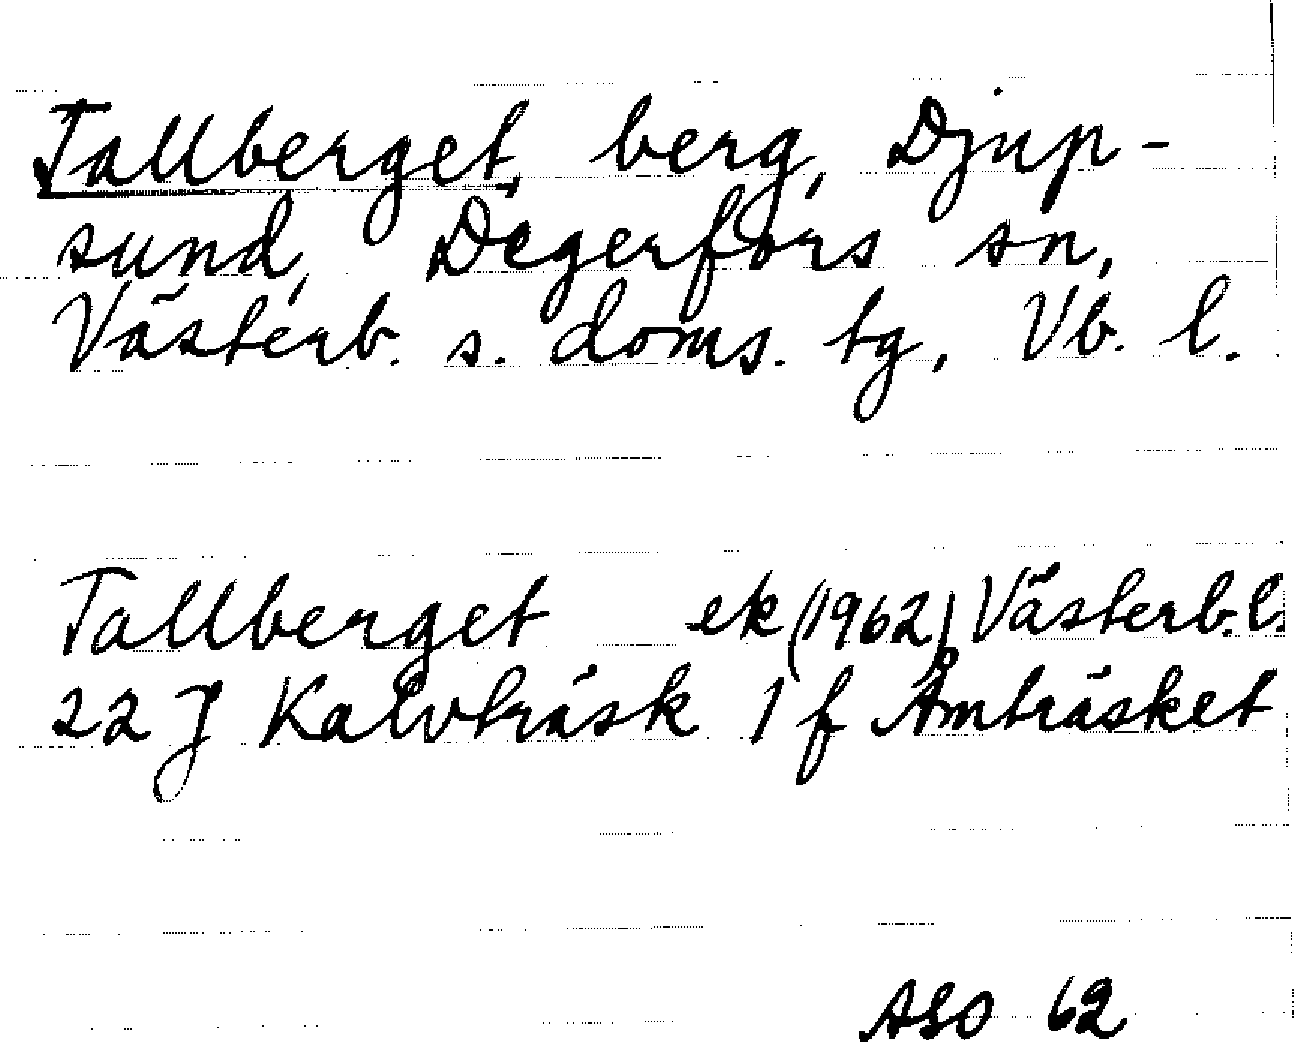 Tallberget, berg, Djup-
sund, Degerfors sn,
Västerb. s. doms. tg, Vb. l.
Tallberget ek (1962) Västerb. l.
22 J Kalvträsk 1 f Åmträsket
ASO 62